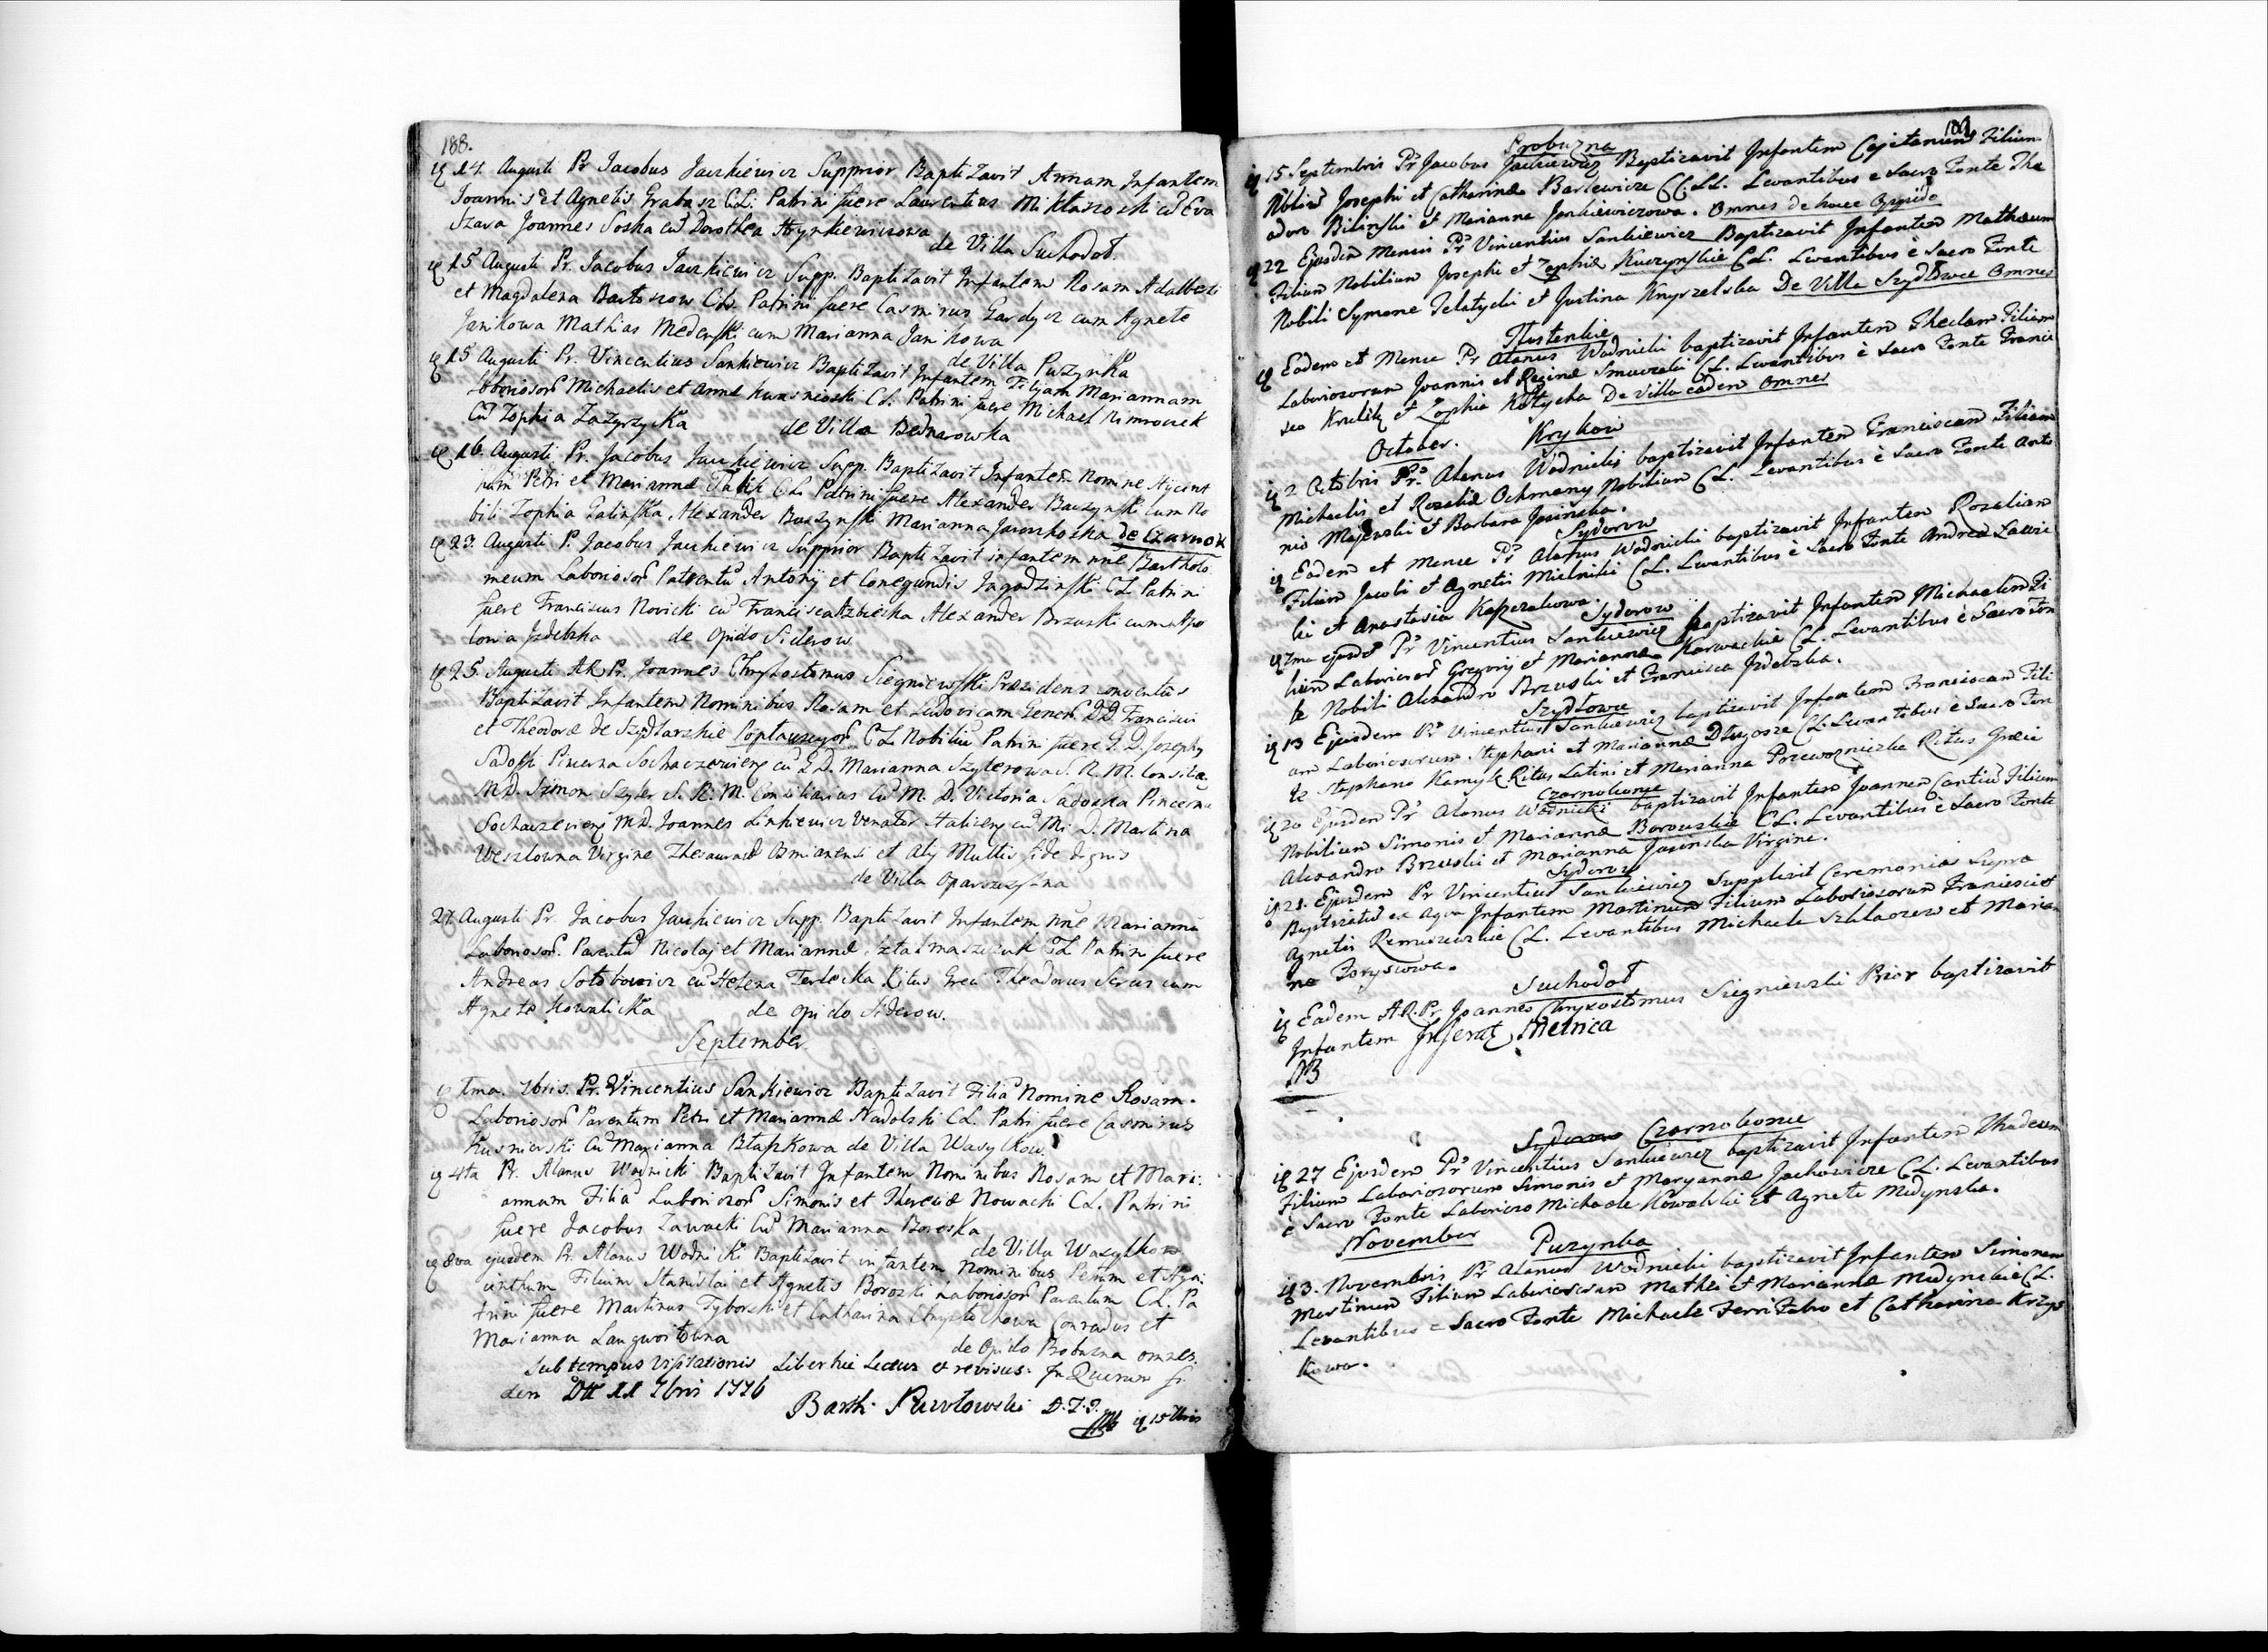 188.
14. Augusti Pr Jacobus Jaukiewicz Supprior Baptizavit Annam Infantem
Joannis et Agnetis Grabasz C.L. Patrini fuere Laurentius Miklaszoski cu Eva
Szava Joannes Soska cu Dorothea Hrynkiewiczowa
de Villa Suchodoł.
15 Augusti Pr. Jacobus Jaukiewicz Supp. Baptizavit Infantem Rosam Adalberti
et Magdalena Bartoszow C.L. Patrini fuere Casmirus Gardysz cum Agnete
Janikowa Mathias Medenski cum Marianna Janikowa
de Villa Puzynka
15 Augusti Pr. Vincentius Sankiewicz Baptizavit Infantem Filyam Mariannam
Laboriosor Michaelis et Annæ Kuzsnieoski C.L. Patrini fuere Michael Nimrowek
Cu Zophia Zazyrzycka de Villa Bednarowka
16. Augusti Pr. Jacobus Jaukiewicz Supp. Baptizavit Infantem Nomine Hyacint
hum Petri et Mariannæ C.L. Patrini fuere Alexander Baczynski cum No
bili Zophia Galinska, Alexander Baczynski Marianna Jaroszkoska de Czarnok
23. Augusti P. Jacobus Jaukiewicz Supprior Baptizavit infantem nne Bartholo
meum Laboriosor Parentu Antonij et Conegundis Jagodzinski C.L. Patrini
fuere Franciscus Novicki cu Francisca Alexander Brzuski cum Apo
lonia Jzdebska de Opido Siderow
25. Augusti A.R.P. Joannes Chrysostomus Siegniewski Præsidens conventus
Baptizavit Infantem Nominibus Rosam et Ludovicam Generos DD Francisci
et Theodoræ de Szydłarskie C.L. Nobiliu Patrini fuere G.D. Josephy
Sadoski Pincerna Sochaczewieng cu G.D. Marianna Szylerowa S. R. M. Consilia
M.D. Simon Szyler S. R. M. Consiliarius Cu M. D. Victoria Sadoska Pincerna
Sochaczewieng M.D. Joannes Linkiewicz Venator Halicieng cu M. D. Martina
Weszlowna Virgine Thesaurario Osmianensi et Alij Multis fide dignis
de Villa Oparszczyzna
27 Augusti Pr. Jacobus Jaukiewicz Supp. Baptizavit Infantem nne Marianna
Laboriosor. Parentu Nicolaj et Mariannæ C.L. Patrini fuere
Andreas Sotobowicz cu Helena Terlecka Ritus Græci Theodorus Serus cum
Agnete Kowalicka de opido Siderow.
September
1ma 7bris. Pr. Vincentius Sankiewicz Baptizavit Filia Nomine Rosam.
Laboriosor Parentum Petri et Mariannæ Nadolski C.L. Patri fuere Casmirus
Kusnierski Cu Marianna Błaszkowa de Villa Wasylkow
4ta Pr. Alanus Wodnicki Baptizavit Infantem Nominibus Rosam et Mari:
annam Filia Laboriosor Simonis et Theresiæ Nowacki C.L. Patrini
fuere Jacobus Zawacki Cu Marianna Boroska
de Villa Wasylkow
8va ejusdem Pr. Alanus Wodnicki Baptizavit infantem Nominibus Petrum et Hya
cinthum Filium Stanislai et Agnetis Boroski Laboriosor Parentum C.L. Pa
trini fuere Martinus Tyborski et Catharina Chrystochowa Conradus et
Marianna Languoitowna de Opido Probuzna omnes.
Sub tempus Visitationis Liber hic Lectus et revisus: In Quorum fi
dem Dtt 11 7bris 1776
Barth: Pawłowski D.Z.P.
15 7bris
189
Probuzna
15 Septembris Pr Jacobus Jaukiewicz Baptizavit Infantem Cajetanum Filium
Nobiliu Josephi et Catharinæ Barlewicze C.C.L.L. Levantibus e Sacro Fonte Tha
adæo Bilinski et Marianna Jankiewiczowa. Omnes de hocce Oppido
22 Ejusdem Mensis Pr Vincentius Sankiewicz Baptizavit Infantem Mathæum
Filium Nobilium Josephi et Zophiæ Kuczynskie C.L. Levantibus è Sacro Fonte
Nobili Symone Telatycki et Justina Knyrzelska De Villa Szydłowce Omnes
Tłustenkie
Eadem et Mense Pr Alanus Wodnicki baptizavit Infantem Theclam Filiam
Laboriosorum Joannis et Reginæ Smuczki C.L. Levantibus è Sacro Fonte Franci
sco Krulik et Zophia Kołtycka De Villa eadem Omnes
October. Krykow
2 Octobris Pr. Alanus Wodnicki baptizavit Infantem Franciscam Filiam
Michaelis et Rozaliæ Ochmany Nobilium C.L. Levantibus è Sacro Fonte Anto
nio Majewski et Barbara Jasinska.
Syderow
Eadem et Mense Pr Alanus Wodnicki baptizavit Infantem Rozaliam
Filiam Jacobi et Agnetis Mielnicki C.L. Levantibus è Sacro Fonte Andrea Zawic
ki et Anastasia Kasprzakowa.
Syderow
7ma ejusde Pr Vincentius Sankiewicz baptizavit Infantem Michaelem Fi
lium Laboriosor Gregory et Marianna Karwackie C.L. Levantibus è Sacro Fon
te Nobili Alexandro Brzuski et Francisca Jzdebska.
Szydłowce
13 Ejusdem Pr Vincentius Sankiewicz baptizavit Infantem Franciscam Fili
am Laboriosorum Stephani et Mariannæ Długosze C.L. Levantibus è Sacro Fon
te Stephano Kamyk Ritus Latini et Marianna Przewozniczka Ritus Græci
Czarnokonce
20 Ejusdem Pr Alanus Wodnicki baptizavit Infantem Joannem Cantiu Filium
Nobilium Simonis et Mariannæ Borouskie C.L. Levantibus è Sacro Fonte
Alexandro Brzuski et Marianna Jasinska Virgine.
Syderow
21. Ejusdem Pr Vincentius Sankiewicz Supplevit Ceremonias Supra
Baptizatu ex Aqua Infantem Martinum Filium Laboriosorum Francisci et
Agnetis Remiszewskie C.L. Levantibus Michaele Szklaorzew et Marian
na Forysiowa.
Suchodoł
Eadem A.R.Pr. Joannes Chrysostomus Siegniewski Prior baptizavit
Infantem Inserat Metrica
NB
Syderow Czarnokonce
27 Ejusdem Pr Vincentius Sankiewicz baptizavit Infantem Thadeum
Filium Laboriosorum Simonis et Maryannæ Jachowicze C.L. Levantibus
è Sacro Fonte Laborioso Michaele Kowalski et Agnete Medynska.
November Puzynka
3. Novembris Pr Alanus Wodnicki baptizavit Infantem Simonem
Martinum Filium Laboriosorum Mathei et Mariannæ Medynskie C.L.
Levantibus è Sacro Fonte Michaele Ferri Fabro et Catharina Krzys
kowa.